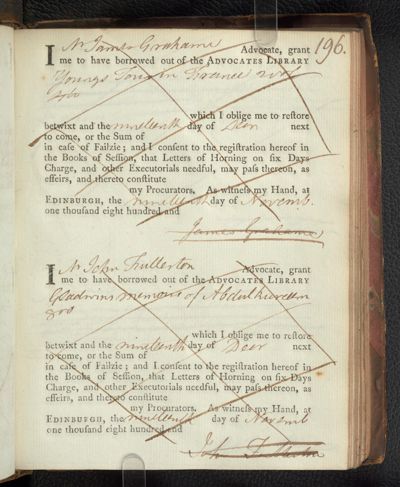 196.
I Mr James Grahame Advocate, grant
me to have borrowed out of the ADVOCATES LIBRARY
Youngs Tour in France 2 vol
4to
which I oblige me to reſtore
betwixt and the nineteenth day of Decr next
to come, or the Sum of
in caſe of Failzie; and I conſent to the regiſtration hereof in
the Books of Seſſion, that Letters of Horning on ſix Days
Charge, and other Executorials needful, may paſs thereon, as
effeirs, and thereto conſtitute
my Procurators. As witneſs my Hand, at
EDINBURGH, the nineteenth day of Novemb.
one thouſand eight hundred and
James Grahame
I Mr John Fullerton Advocate, grant
me to have borrowed out of the ADVOCATES LIBRARY
Gladwins memoirs of Abdulkurreem
8vo
which I oblige me to reſtore
betwixt and the nineteenth day of Decr next
to come, or the Sum of
in caſe of Failzie; and I conſent to the regiſtration hereof in
the Books of Seſſion, that Letters of Horning on ſix Days
Charge, and other Executorials needful, may paſs thereon, as
effeirs, and thereto conſtitute
my Procurators. As witneſs my Hand, at
EDINBURGH, the nineteenth day of Novemb
one thouſand eight hundred and
John Fullerton